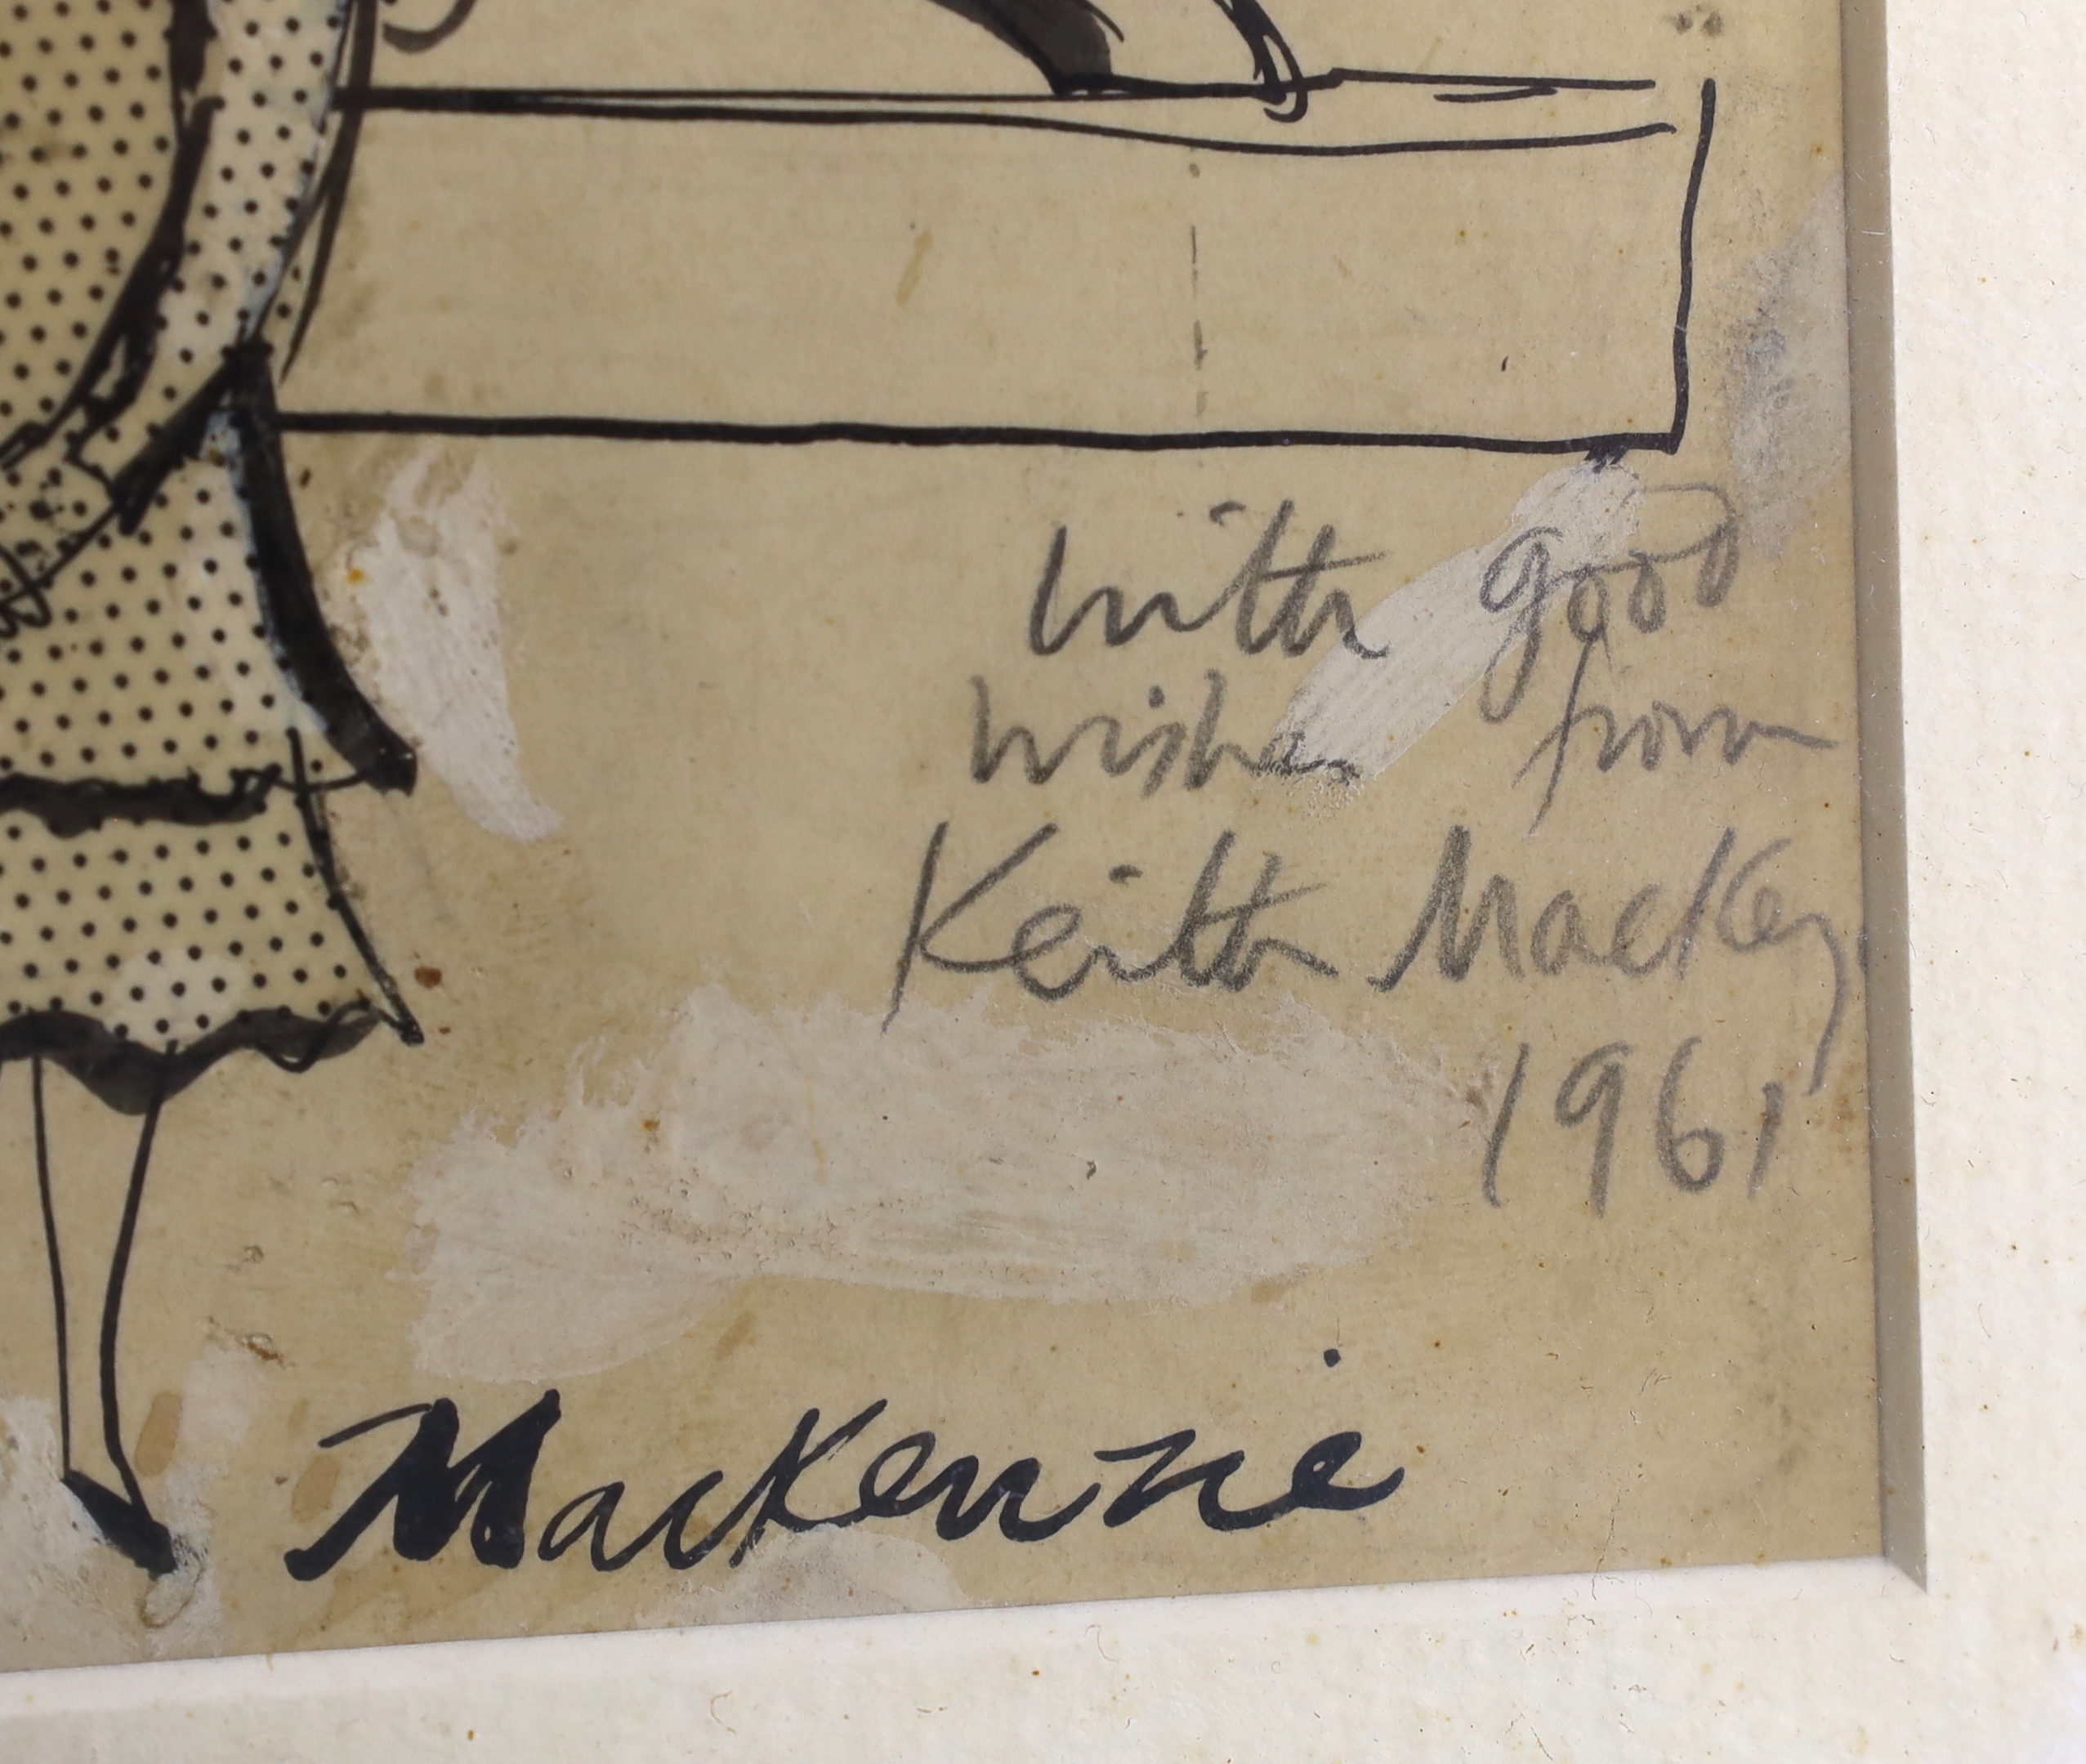 with good
wishes from
Keith Mackenzie
1961
MacKenzie